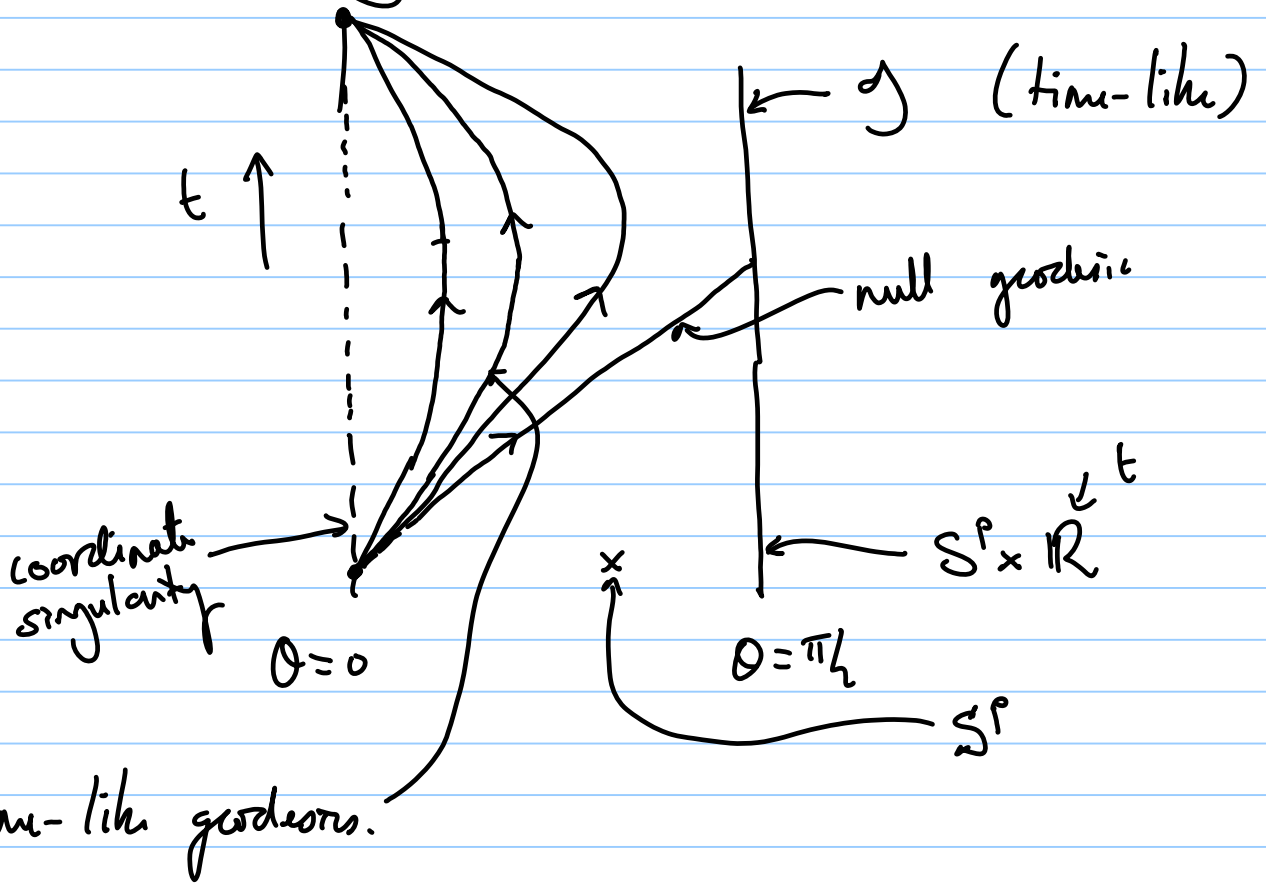 𝓘 (time-like)
t ↑
null geodesic
t
coordinate
singularity
S^p × ℝ
θ=0
θ=π/2
S^p
me-like geodesics.